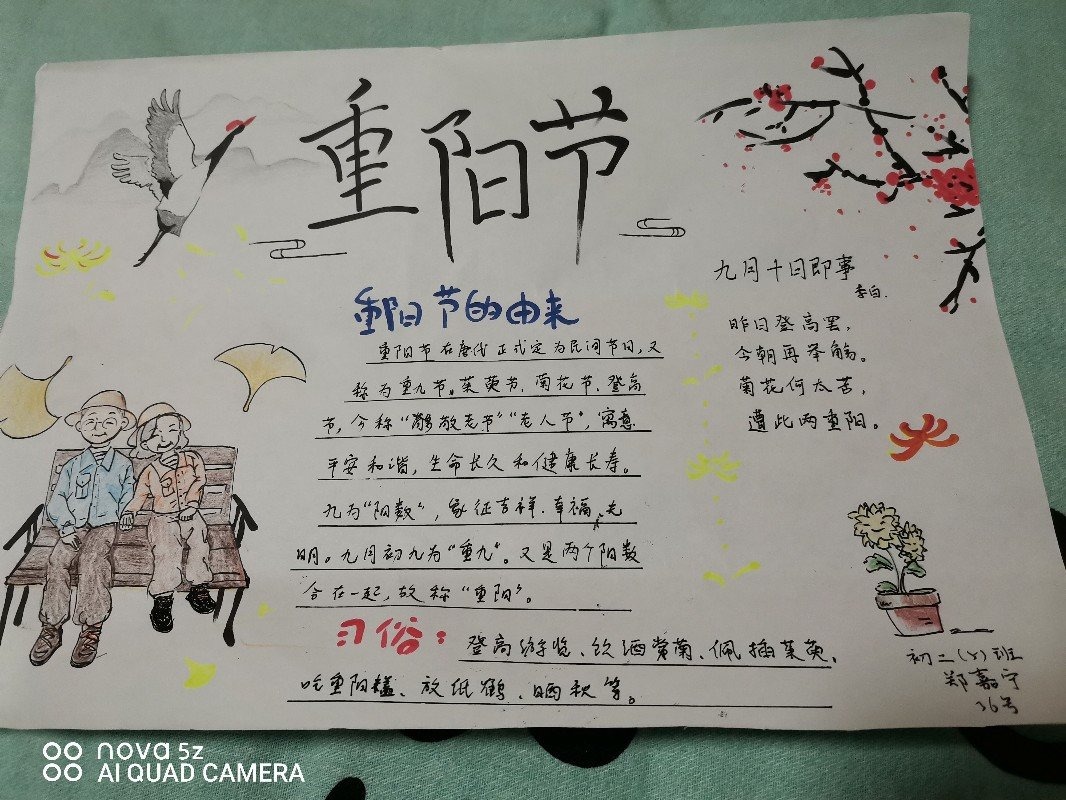 重阳节
重阳节的由来
重阳节在唐代正式定为民间节日，又
称为重九节、茱萸节、菊花节、登高
节，今称“敬老节”“老人节”，寓意
平安和谐，生命长久和健康长寿。
九为“阳数”，象征吉祥、幸福、光
明。九月初九为“重九”。又是两个阳数
合在一起，故称“重阳”。
习俗：登高游览、饮酒赏菊、佩插茱萸、
吃重阳糕、放纸鹤、晒秋等。
九月十日即事
李白.
昨日登高罢，
今朝再举觞。
菊花何太苦，
遭此两重阳。
初二班
郑嘉宁
36号
nova 5z
AI QUAD CAMERA